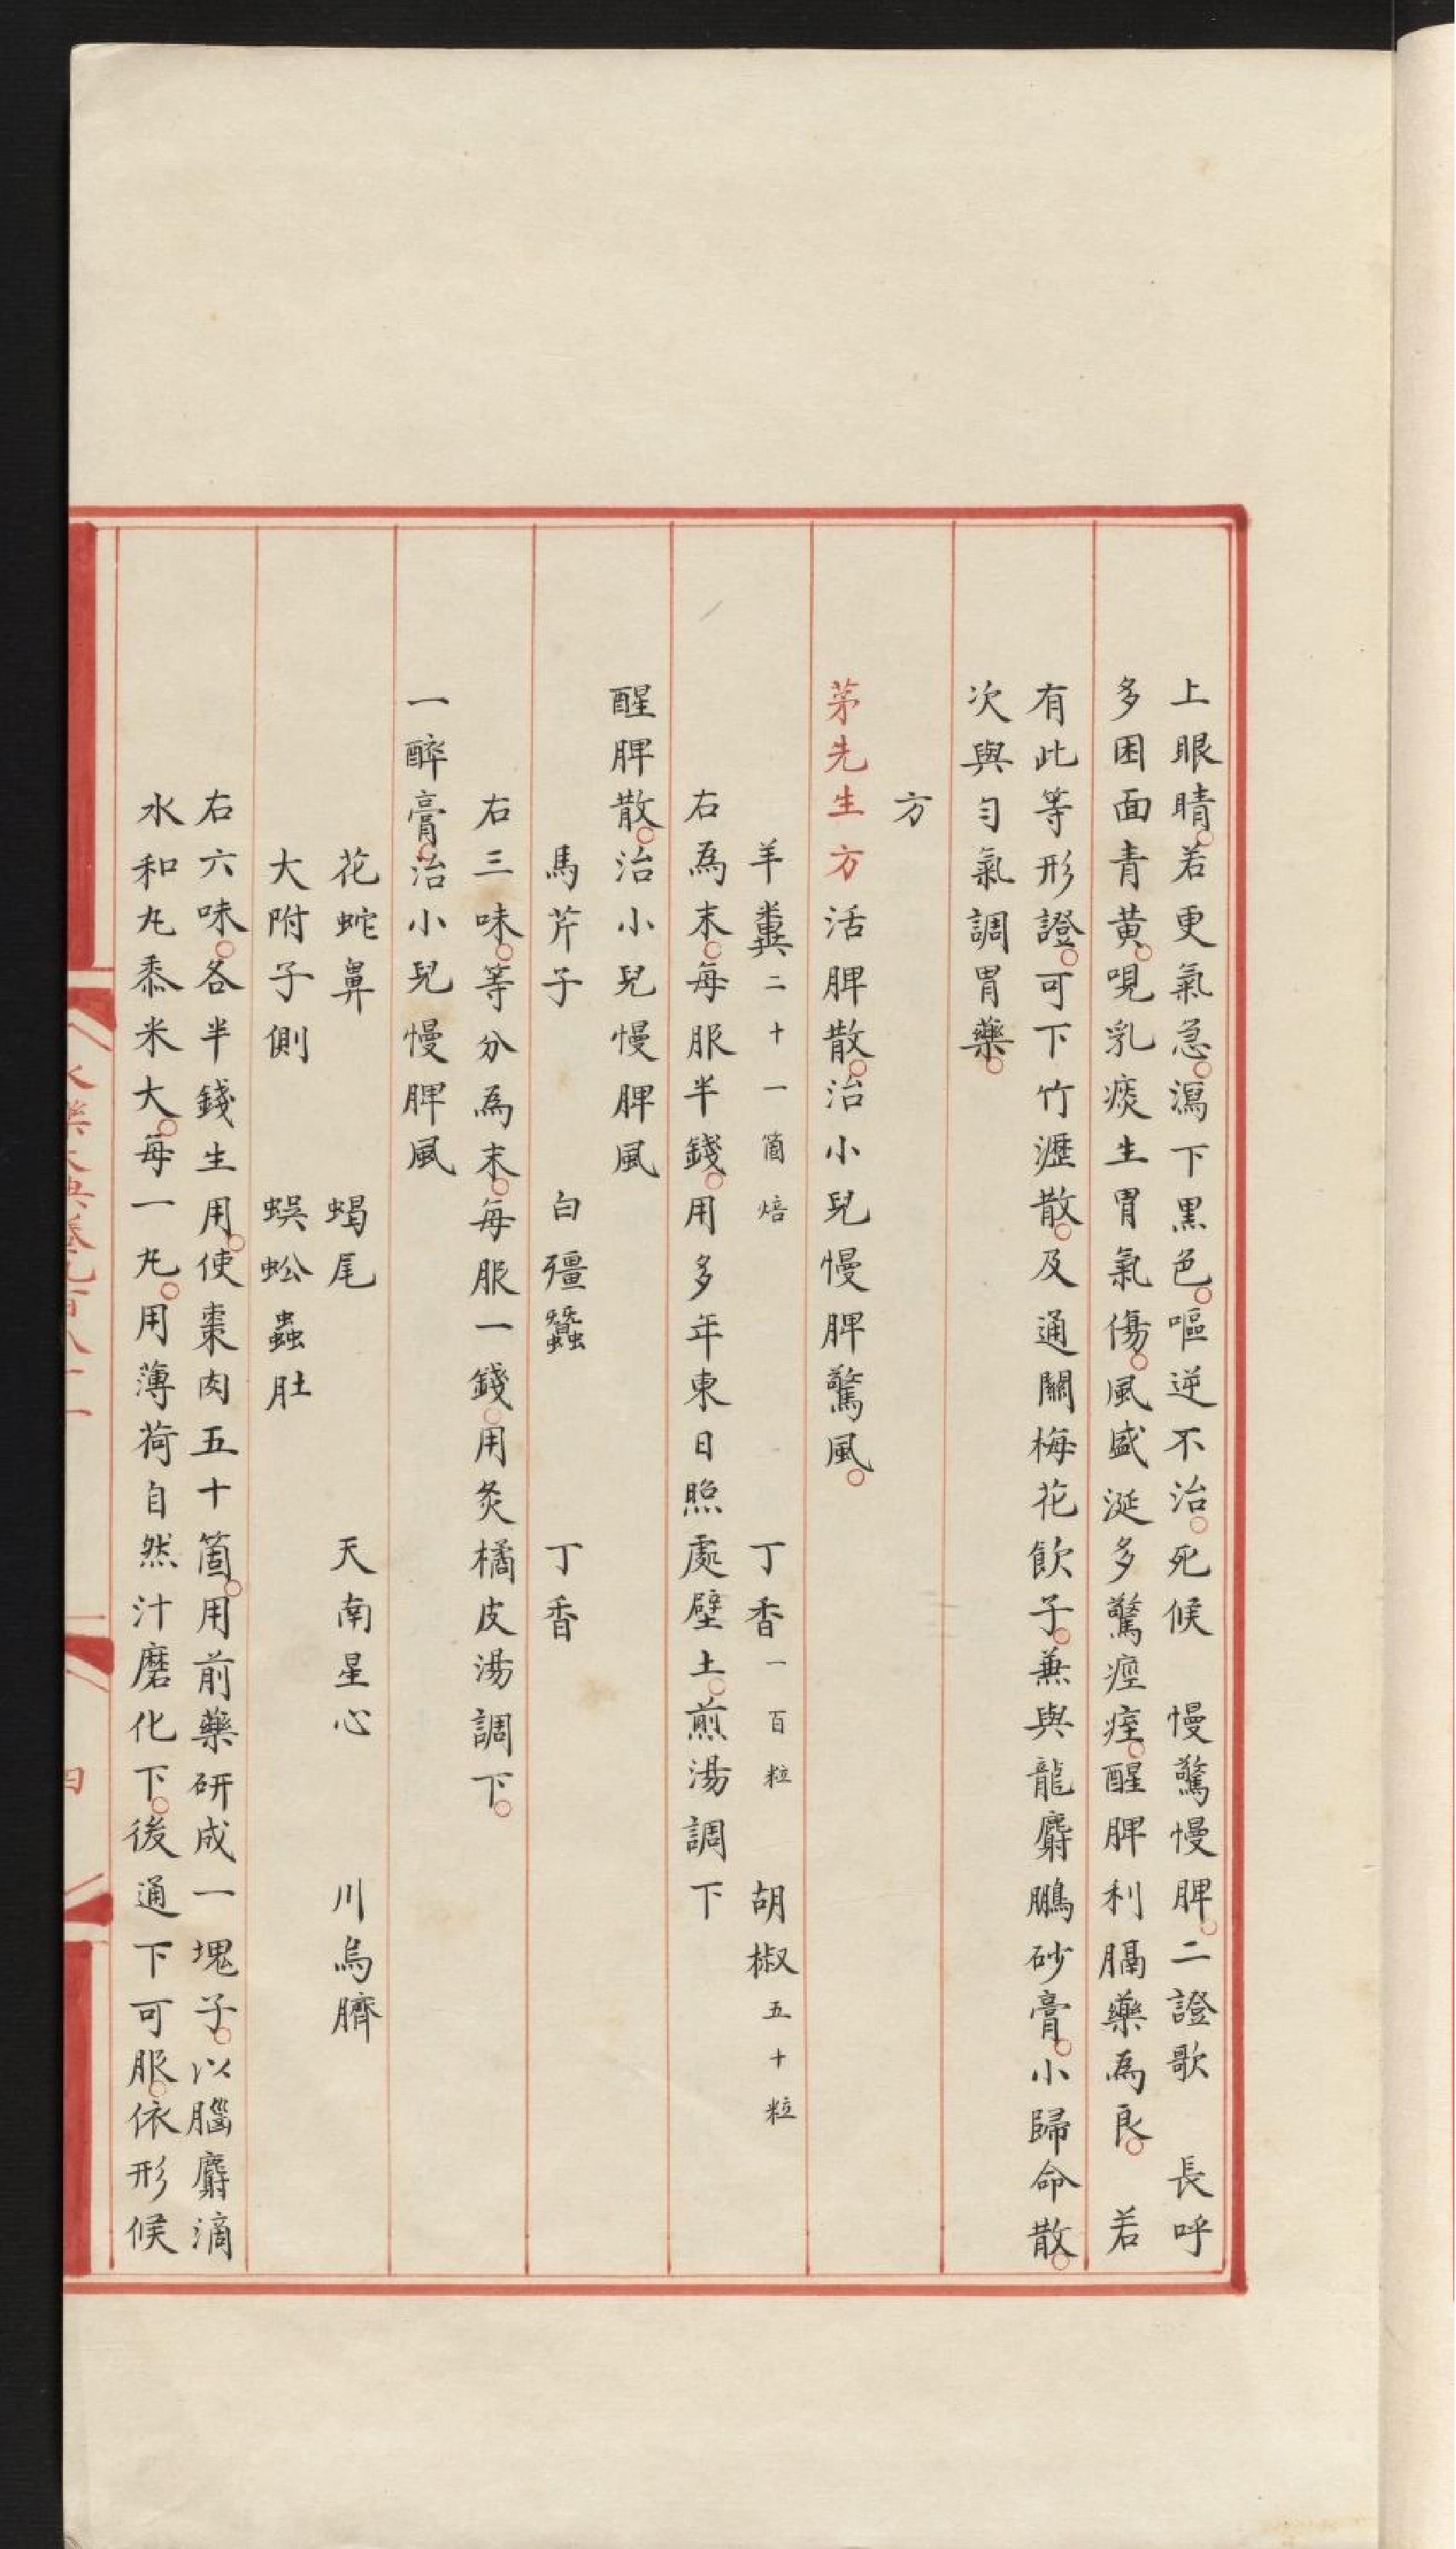 上眼睛。若更氣急。瀉下黒色。嘔逆不治。死候　慢驚慢脾。二證歌　長呼
多困面青黄。哯乳痰生胃氣傷。風盛涎多驚瘂㽷。醒脾利膈藥為良。　若
有此等形證。可下竹瀝散。及通關梅花飲子。兼與龍麝鵬砂膏。小歸命散。
次與勻氣調胃藥。
方
茅先生方活脾散。治小兒慢脾驚風。
羊糞二十一箇焙　丁香一百粒　胡椒五十粒
右為末。每服半錢。用多年東日照處壁土。煎湯調下
醒脾散。治小兒慢脾風
馬芹子　白殭蠶　丁香
右三味。等分為末。每服一錢。用炙橘皮湯調下。
一醉膏。治小兒慢脾風
花蛇鼻　蝎尾　天南星心　川烏臍
大附子側　蜈蚣蟲肚
右六味。各半錢生用。使棗肉五十箇。用前藥研成一塊子。以腦麝滴
水和丸黍米大。每一丸。用薄荷自然汁磨化下。後通下可服。依形候